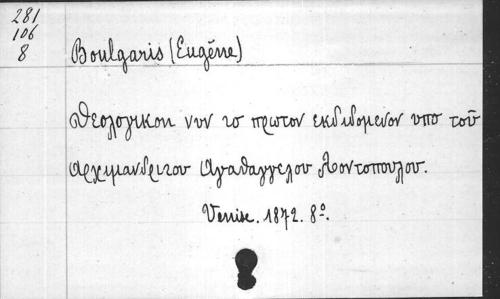 281
106
8
Boulgaris (Eugéne)
Θεολογικον νυν το πρωτον εκδιδομενον υπο τοῦ
αρχιμανδριτου Αγαθαγγελου Λοντοπουλου.
Venise. 1872. 8º.